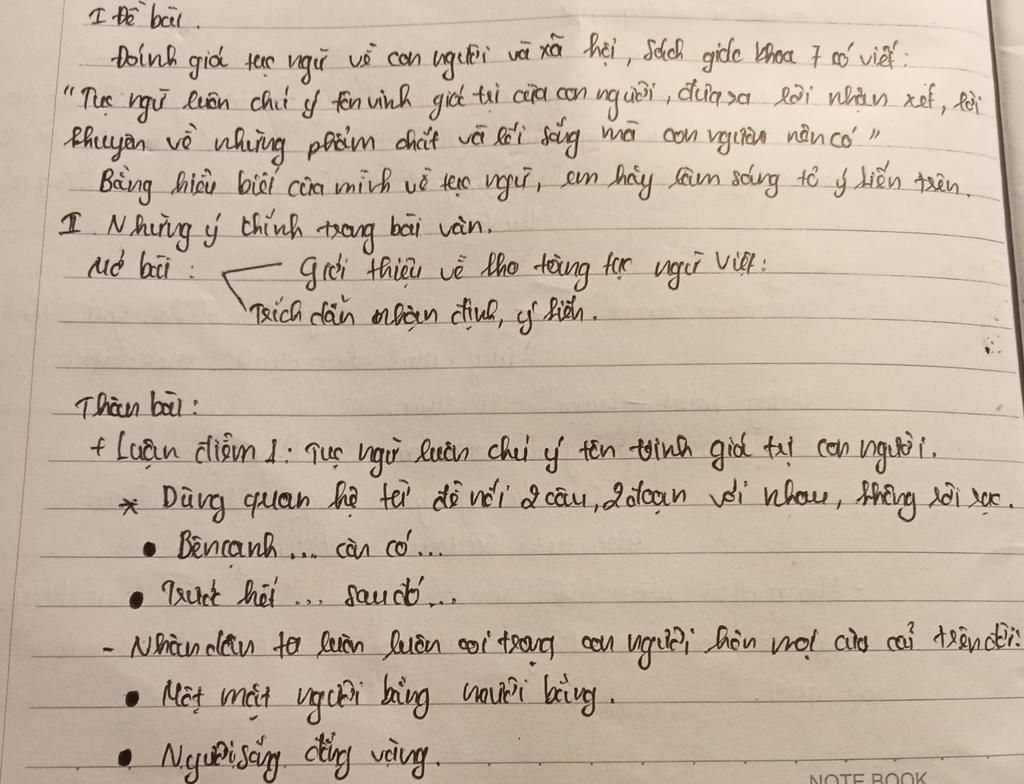 I Đề bài.
Đánh giá tục ngữ về con người và xã hội, sách giáo khoa 7 có viết:
"Tục ngữ luôn chú ý tôn vinh giá trị của con người, đưa ra lời nhận xét, lời
khuyên về những phẩm chất và lối sống mà con người nên có"
Bằng hiểu biết của mình về tục ngữ, em hãy làm sáng tỏ ý kiến trên.
II Những ý chính trong bài văn.
Mở bài: Giới thiệu về kho tàng tục ngữ Việt:
Trích dẫn nhận định, ý kiến.
Thân bài:
+ Luận điểm 1: Tục ngữ luôn chú ý tôn vinh giá trị con người.
* Dùng quan hệ từ để nối 2 câu, 2 đoạn với nhau, không rời rạc.
• Bên cạnh ... còn có ...
• Trước hết ... sau đó ...
- Nhân dân ta luôn luôn coi trọng con người hơn mọi của cải trên đời:
• Một mặt người bằng mười bảng.
• Người sống đống vàng.
NOTE BOOK